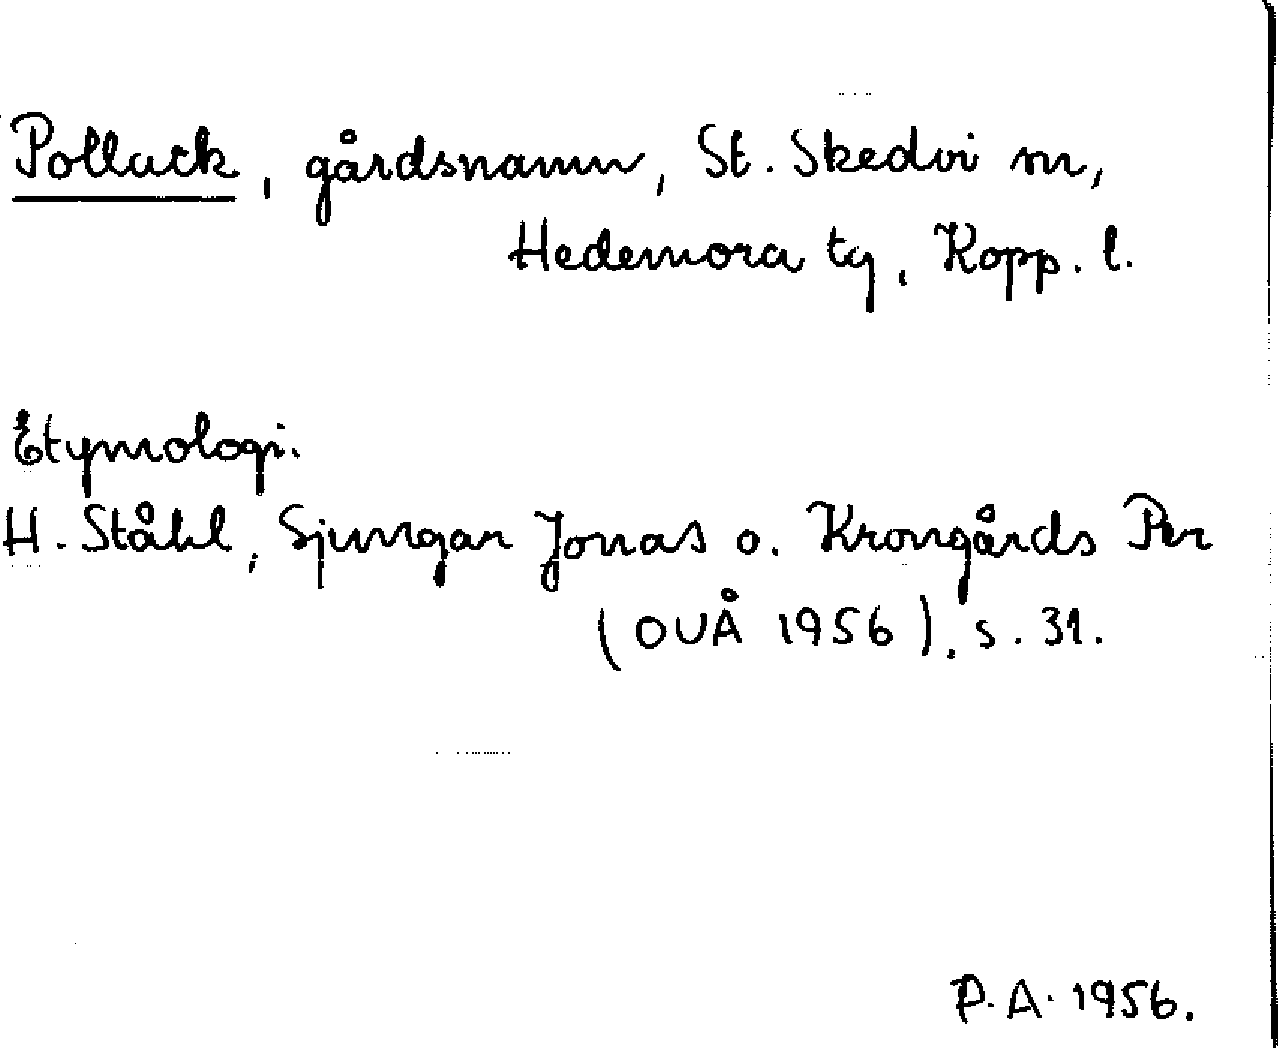 Pollack, gårdsnamn, St. Skedvi sn,
Hedemora tg, Kopp. l.
Etymologi.
H. Ståhl, Sjungar Jonas o. Krongårds Per
(OUÅ 1956). s. 31.
P.A. 1956.